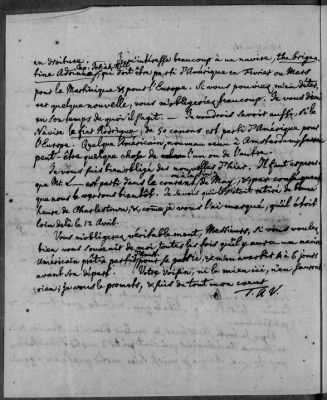 en droiture. Je m'intéresse beaucoup à un navire, the briga-
tine Adrienne, Cap. qui doit être parti d'Amérique en Fevrier ou Mars
pour la Martinique & pour l'Europe. Si vous pouvez m'en débi-
ter quelque nouvelle, vous m'obligerez beaucoup. Je vous dirai
en son temps de quoi il s'agit. — Je voudrois savoir aussi, si le
Navire le fier Rodrigue, de 50 canons est parti d'Amérique pour
l'Europe. Quelque Américain, nouveau venu à Amsterdam,
peut-être quelque chose de l'un ou de l'autre.
Je vous suis bien obligé des nouvelles d'hier. Il faut esperer
que Mr L— est parti dans le courant de May, & par conséquent
que nous le verrons bientôt. Je savois qu'il s'étoit retiré de bonne
heure de Charlestown, & come je vous l'ai marqué, qu'il étoit
loin delà le 12 Avril.
Vous m'obligerez véritablement, Messieurs, si vous voulez
bien vous souvenir de moi toutes les fois qu'il y aura un navire
Américain prêt à partir pour sa patrie, & m'en avertir 4 à 6 jours
avant son départ. Votre voisin, ni le mien ici, n'en sauront
rien; je vous le promets, & suis de tout mon coeur